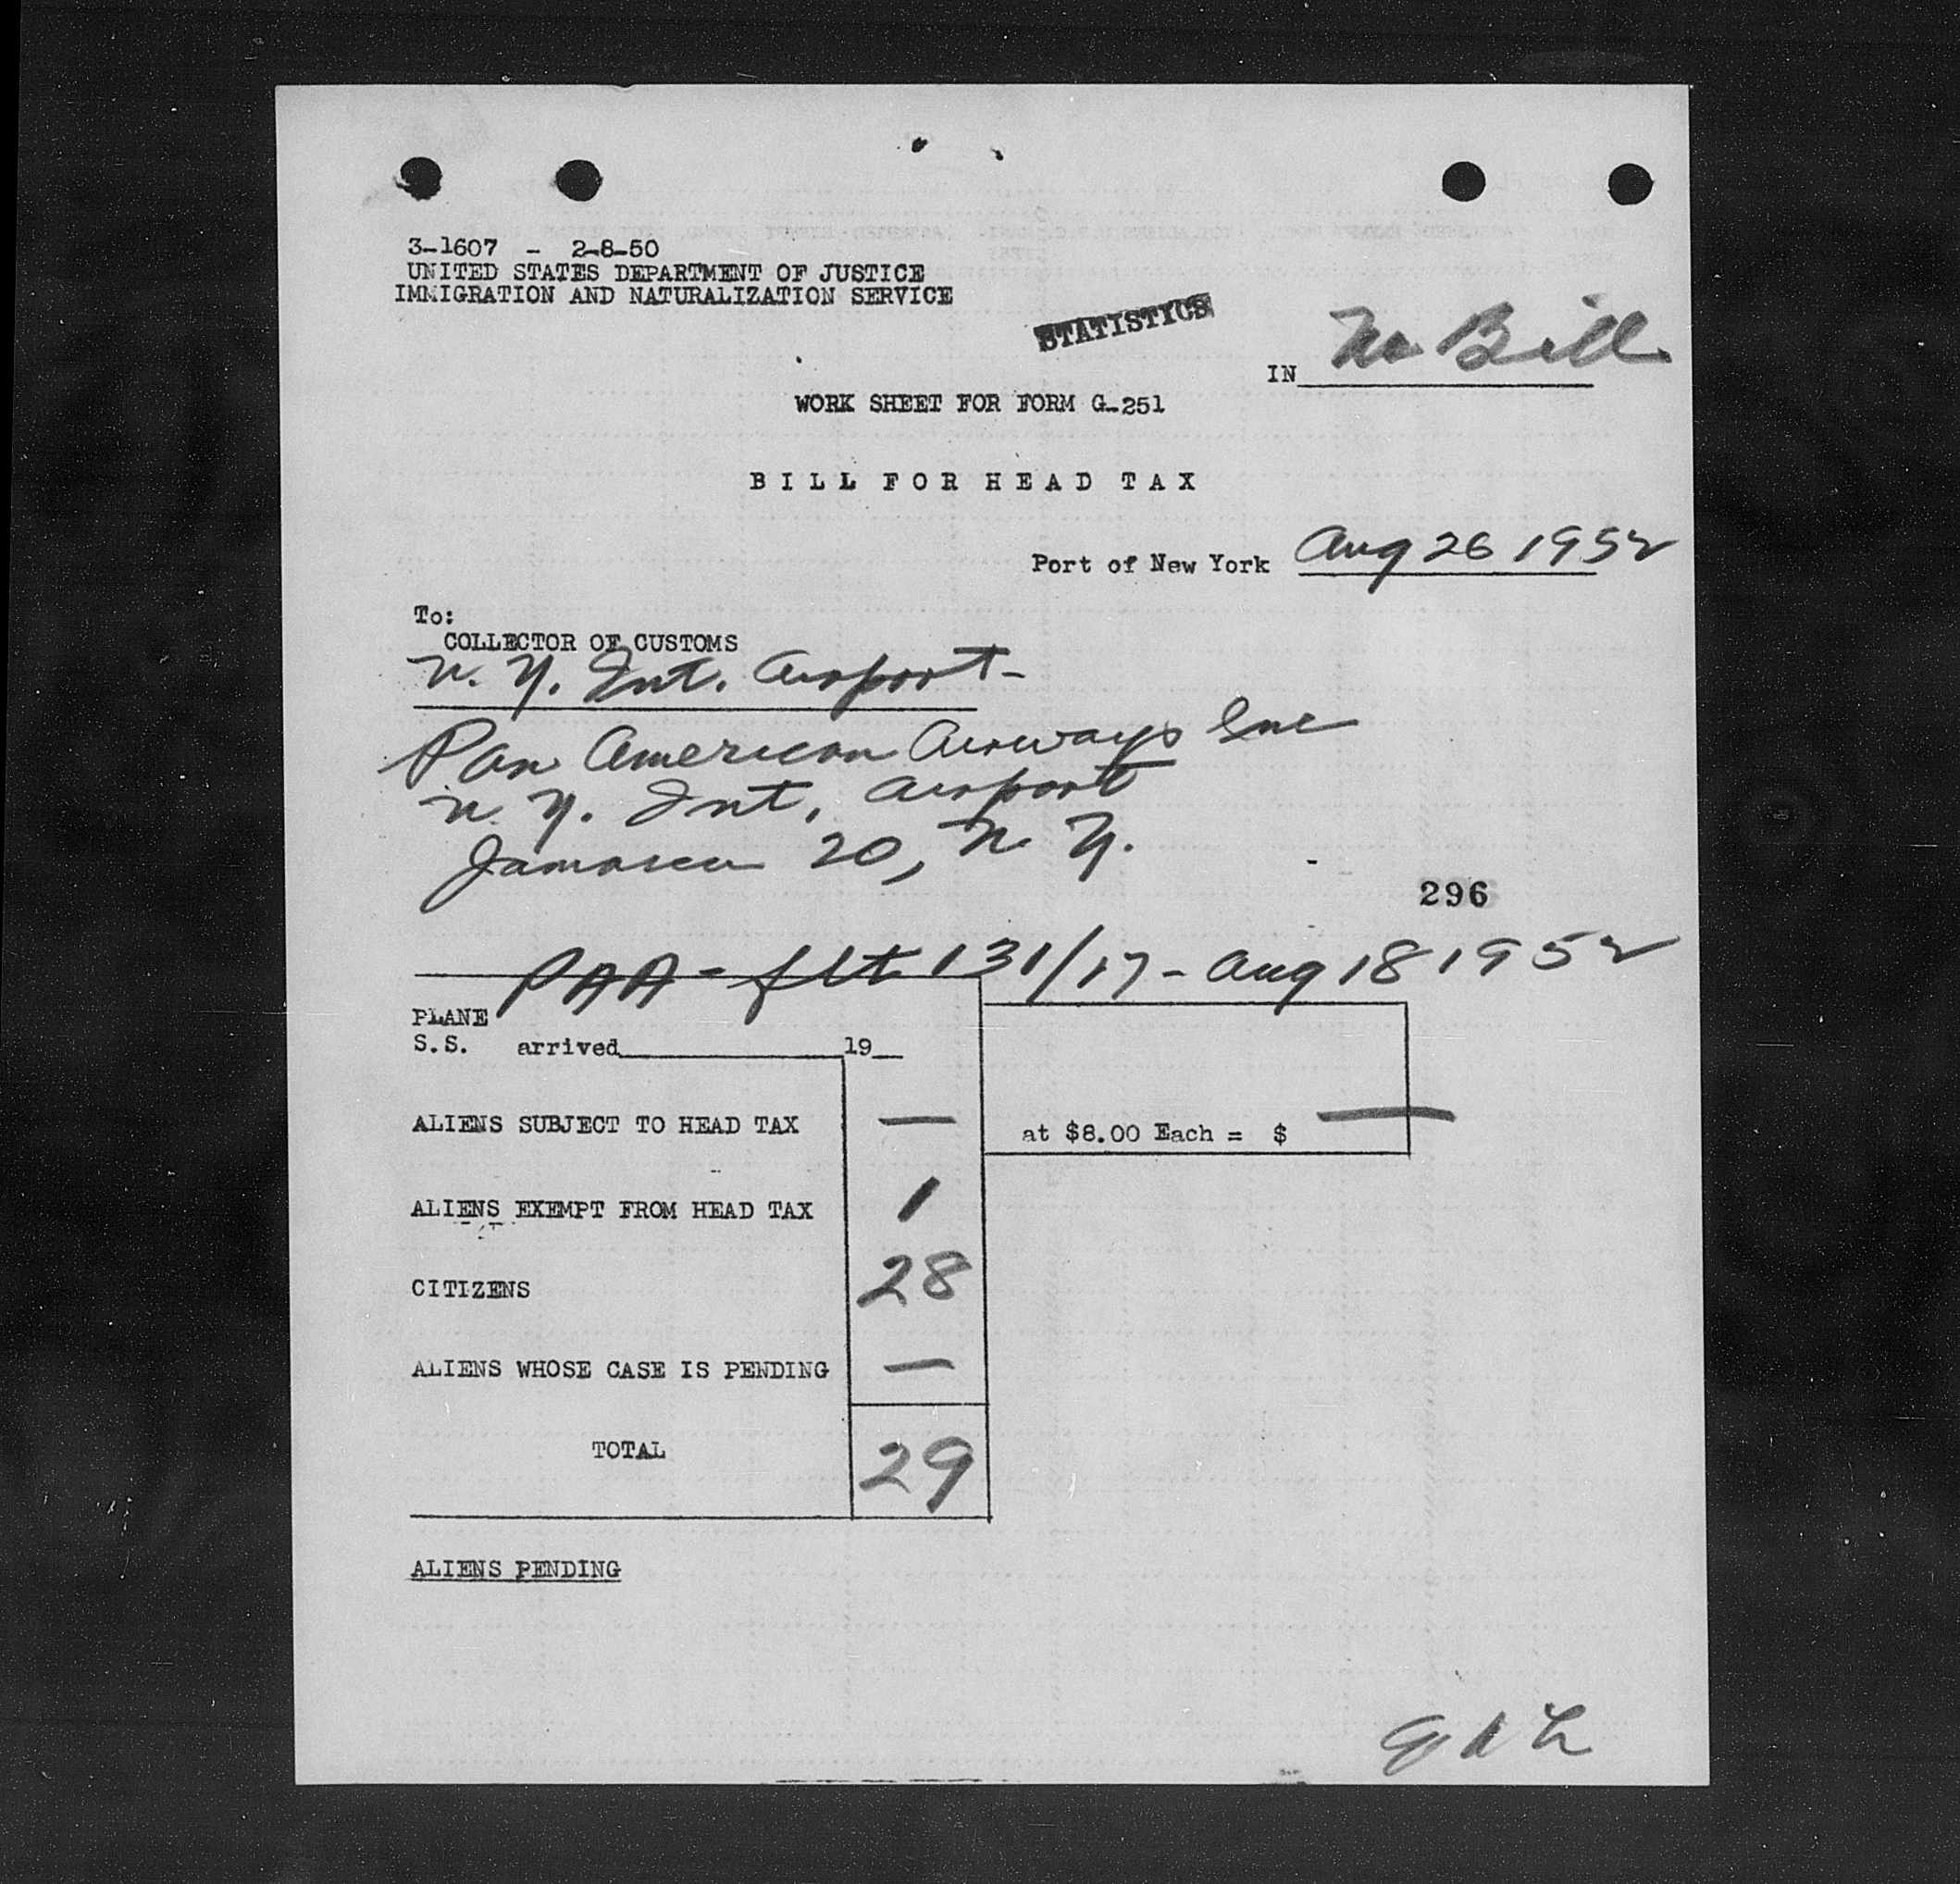 3-1607 - 2-8-50
UNITED STATES DEPARTMENT OF JUSTICE
IMMIGRATION AND NATURALIZATION SERVICE
STATISTICS
IN No Bill
WORK SHEET FOR FORM G-251
BILL FOR HEAD TAX
Port of New York Aug 26 1952
To:
COLLECTOR OF CUSTOMS
N. Y. Int. Airport-
Pan American Airways Inc
N. Y. Int. Airport
Jamaica 20, N. Y.
296
PAA - flt 131/17 - Aug 18 1952
PLANE
S.S. arrived 19
ALIENS SUBJECT TO HEAD TAX — at $8.00 Each = $ —
ALIENS EXEMPT FROM HEAD TAX 1
CITIZENS 28
ALIENS WHOSE CASE IS PENDING —
TOTAL 29
ALIENS PENDING